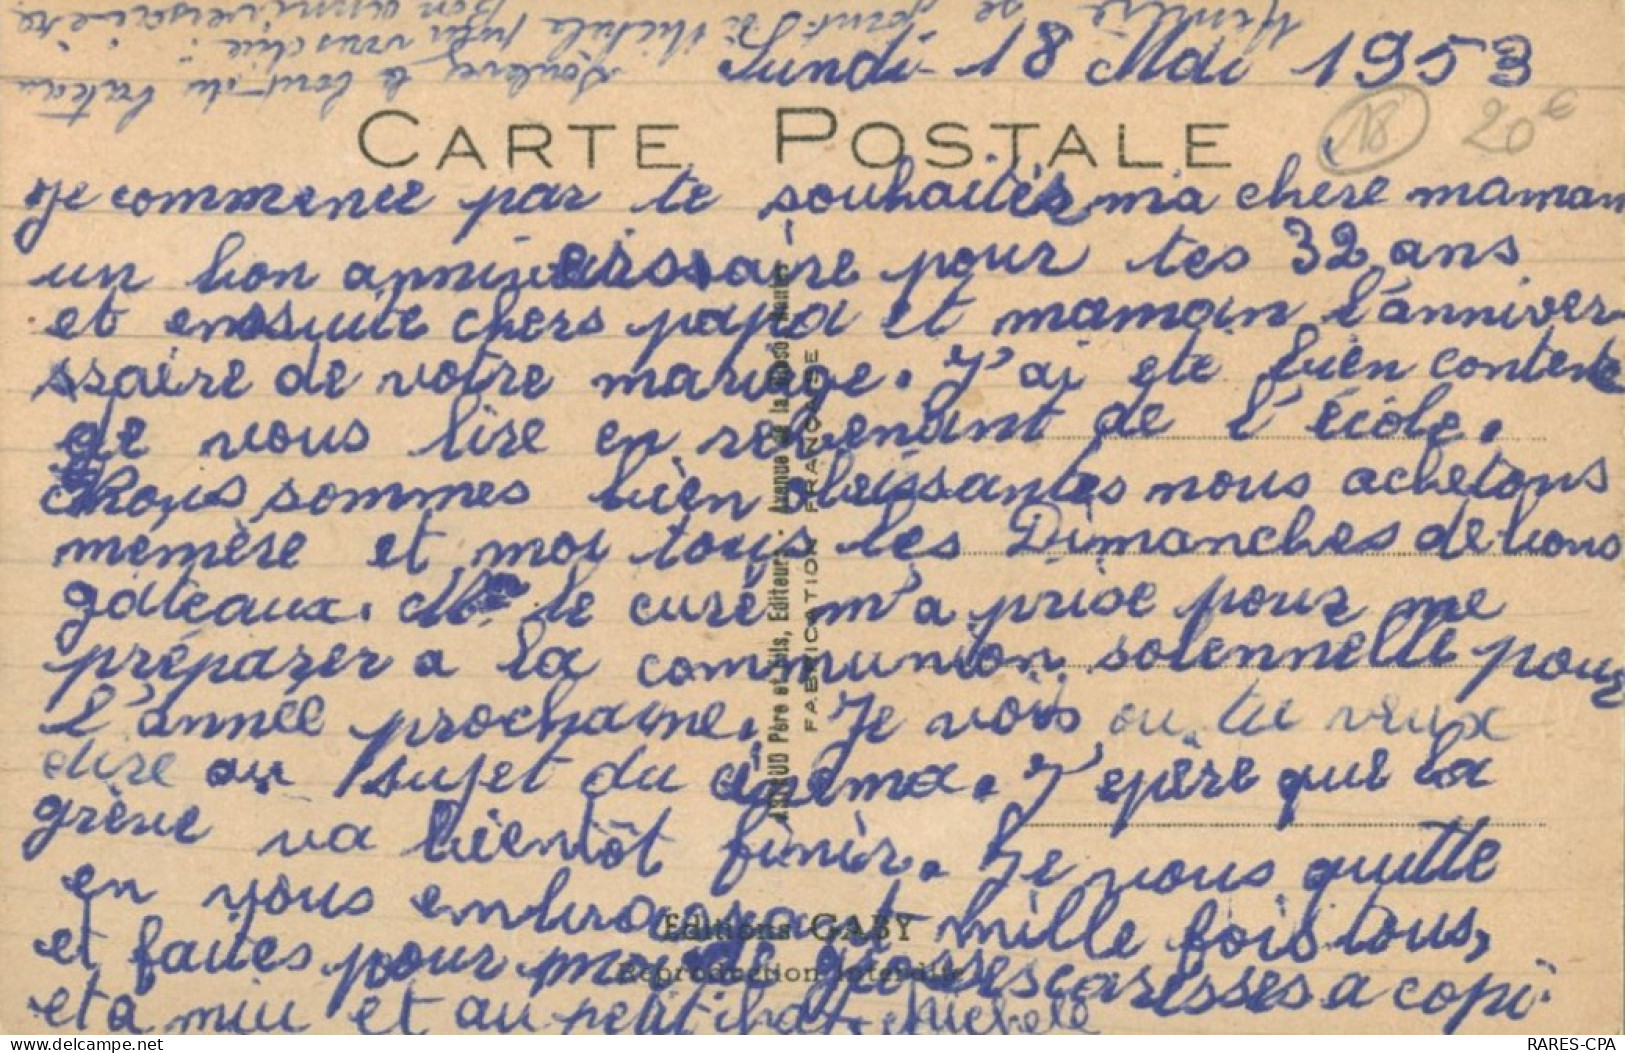 Lundi 18 Mai 1953
18
20€
CARTE POSTALE
Je commence par te souhaiter ma chere maman
un bon anniverssaire pour tes 32 ans
et enssuite chers papa et maman l'anniver-
ssaire de votre mariage. J'ai ete bien contente
de vous lire en revenant de l'école.
Nous sommes bien obeissantes nous achetons
memère et moi tous les Dimanches de bons
gateaux. Mr le curé m'a prise pour me
préparer a la communion solennelle pour
l'année prochaine. Je vois ou tu veux
dire au sujet du cinema. J'epère que la
grève va bientôt finir. Je vous quitte
en vous embrassant mille fois tous,
et faites pour moi de grosses caresses a copi
et a miu et au petit chat Michele
Soulevez le bout du bateau
Bon anniversaire
ARTAUD Père et Fils, Editeurs - Avenue de la Nantes
FABRICATION FRANÇAISE
Editions GABY
Reproduction Interdite
delcampe.net
RARES-CPA